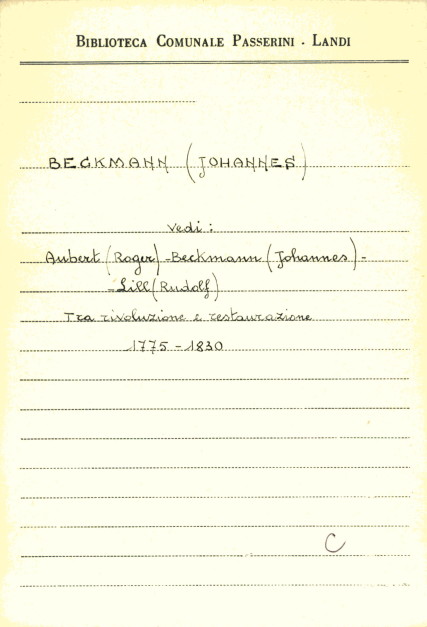 BIBLIOTECA COMUNALE PASSERINI - LANDI
BECKMANN (JOHANNES)
Vedi:
Aubert (Roger) - Beckmann (Johannes) -
- Lill (Rudolf)
Tra rivoluzione e restaurazione
1775 - 1830
C